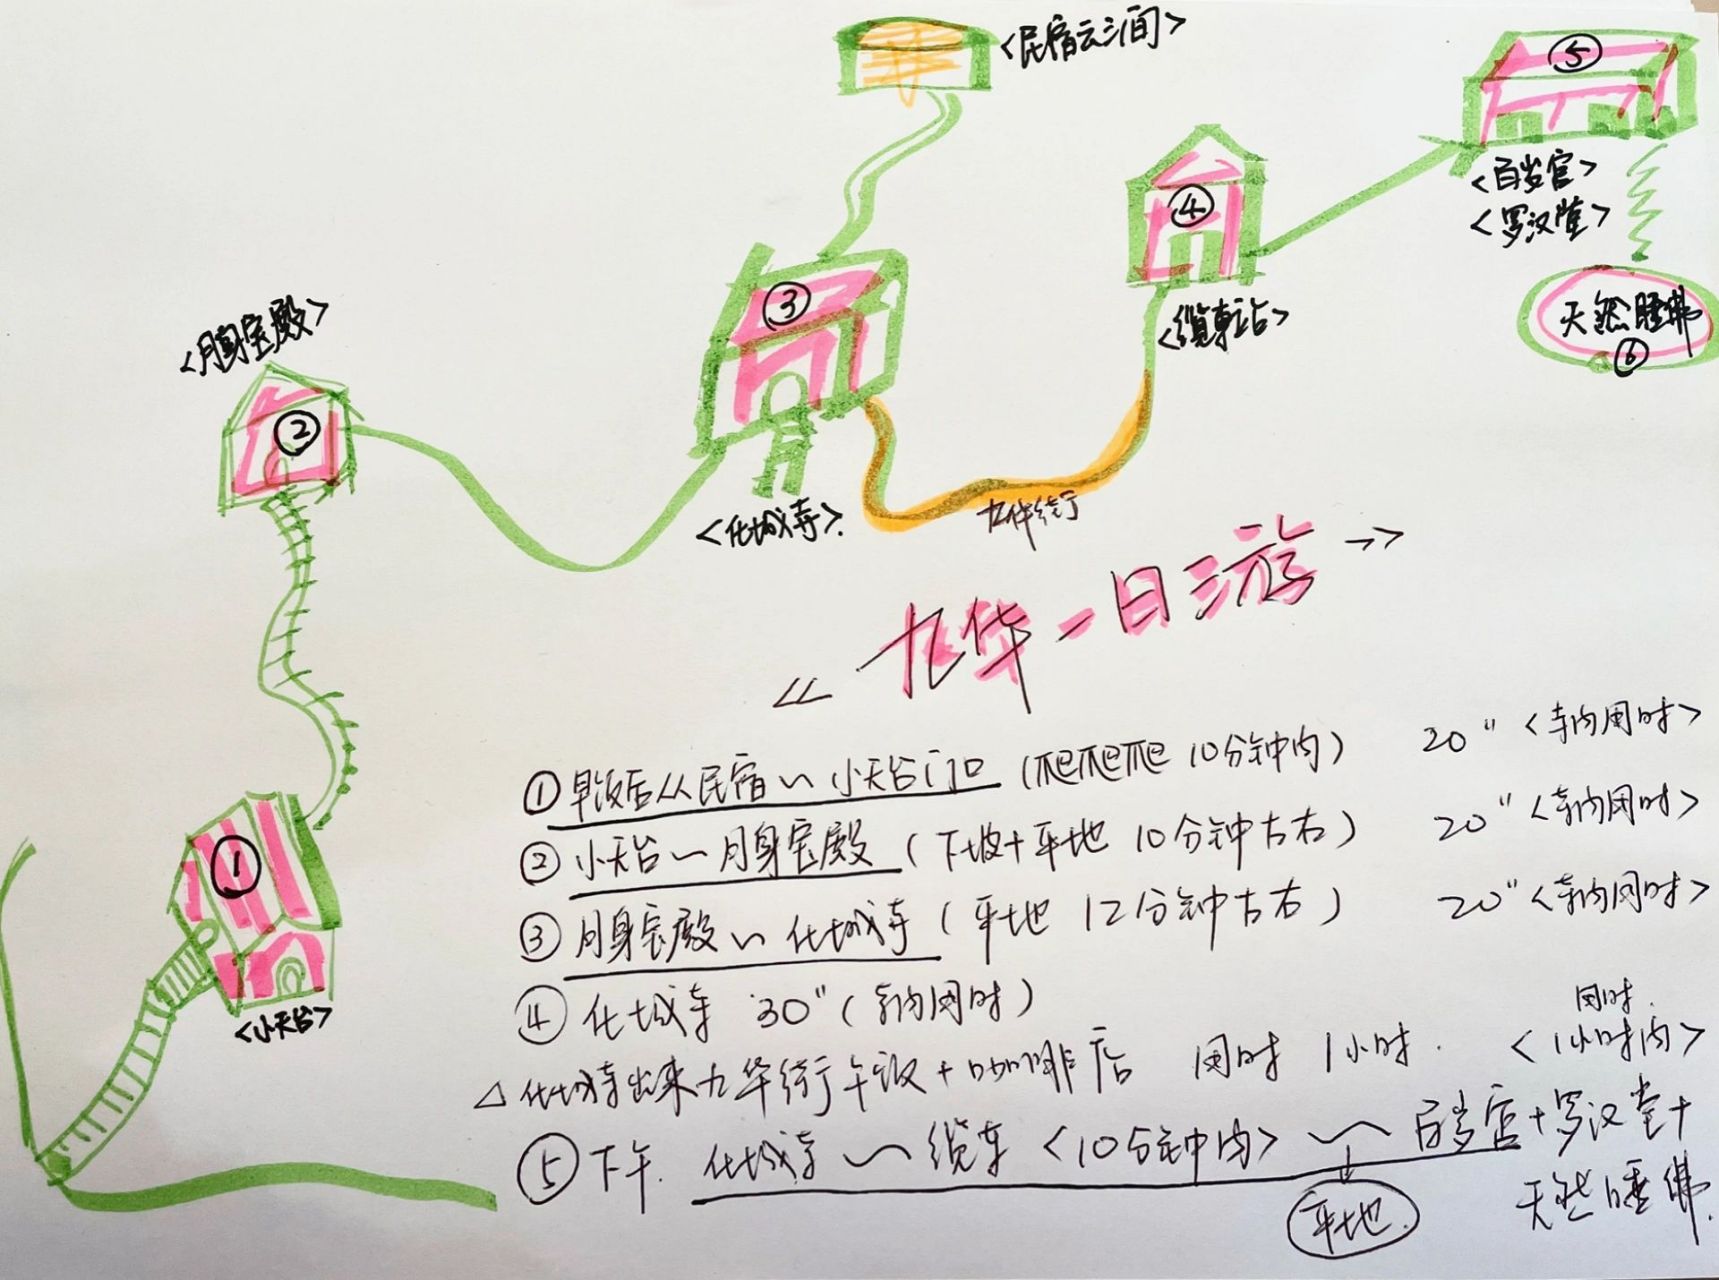 <民宿云三间>
⑤
<百岁宫>
<罗汉堂>
④
<缆车站>
天然睡佛
⑥
③
<化城寺>
<月身宝殿>
②
九华街
《九华一日游》
①
<小天台>
①早饭后从民宿~小天台门口(爬爬爬 10分钟内) 20"<寺内用时>
②小天台~月身宝殿(下坡+平地 10分钟左右) 20"<寺内用时>
③月身宝殿~化城寺(平地 12分钟左右) 20"<寺内用时>
④化城寺 30"(寺内用时)
△化城寺出来九华街午饭+咖啡店 用时 1小时.
用时.
<1小时内>
⑤下午. 化城寺~缆车<10分钟内>~百岁宫+罗汉堂+
天然睡佛.
平地.